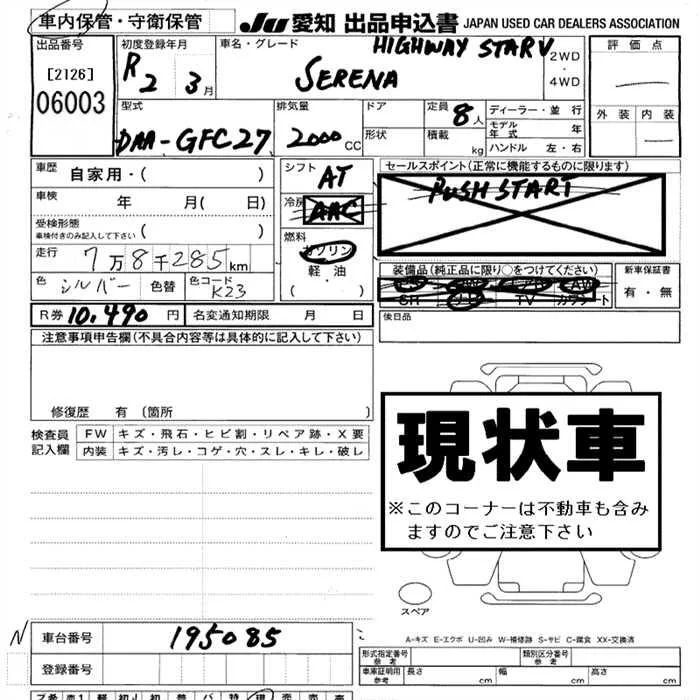 車内保管・守衛保管
JU 愛知 出品申込書 JAPAN USED CAR DEALERS ASSOCIATION
出品番号
[2126]
06003
初度登録年月
R2 3月
車名・グレード
HIGHWAY STAR V
SERENA
2WD
・
4WD
評価点
外装 内装
型式
DAA-GFC27
排気量
2000 CC
ドア
形状
定員 8人
積載 kg
ディーラー・並 行
モデル年式 年
ハンドル 左・右
車歴 自家用・( )
車検 年 月( 日)
受検形態
車検付きのみ記入して下さい ( )
走行 7万8千285km
色 シルバー 色替 色コード K23
シフト AT
冷房 AAC
燃料
ガソリン
軽・油
・( )
セールスポイント(正常に機能するものに限ります)
PUSH START
装備品(純正品に限り○をつけてください)
PS PW エアB AW
SR ナビ TV カワシート
新車保証書
有・無
後日品
R券 10,490 円 名変通知期限 月 日
注意事項申告欄(不具合内容等は具体的に記入して下さい)
修復歴 有(箇所 )
検査員
記入欄
FW キズ・飛石・ヒビ割・リペア跡・X要
内装 キズ・汚レ・コゲ・穴・スレ・キレ・破レ
現状車
※このコーナーは不動車も含み
ますのでご注意下さい
スペア
A-キズ E-エクボ U-凹み W-補修跡 S-サビ C-腐食 XX-交換済
N
車台番号 195085
登録番号
形式指定番号
参考
類別区分番号
参考
車庫証明用
参考
長さ cm 幅 cm 高さ cm